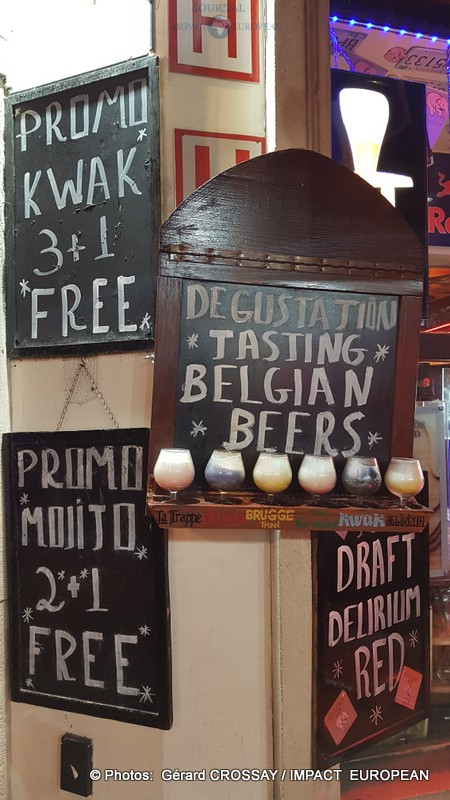 JOURNAL
IMPACT EUROPEAN
H
H
PROMO
KWAK
3+1
FREE
DEGUSTATION
TASTING
BELGIAN
BEERS
La Trappe
BRUGGE
Tripel
KWAK
PROMO
MOJITO
2+1
FREE
DRAFT
DELIRIUM
RED
© Photos: Gérard CROSSAY / IMPACT EUROPEAN